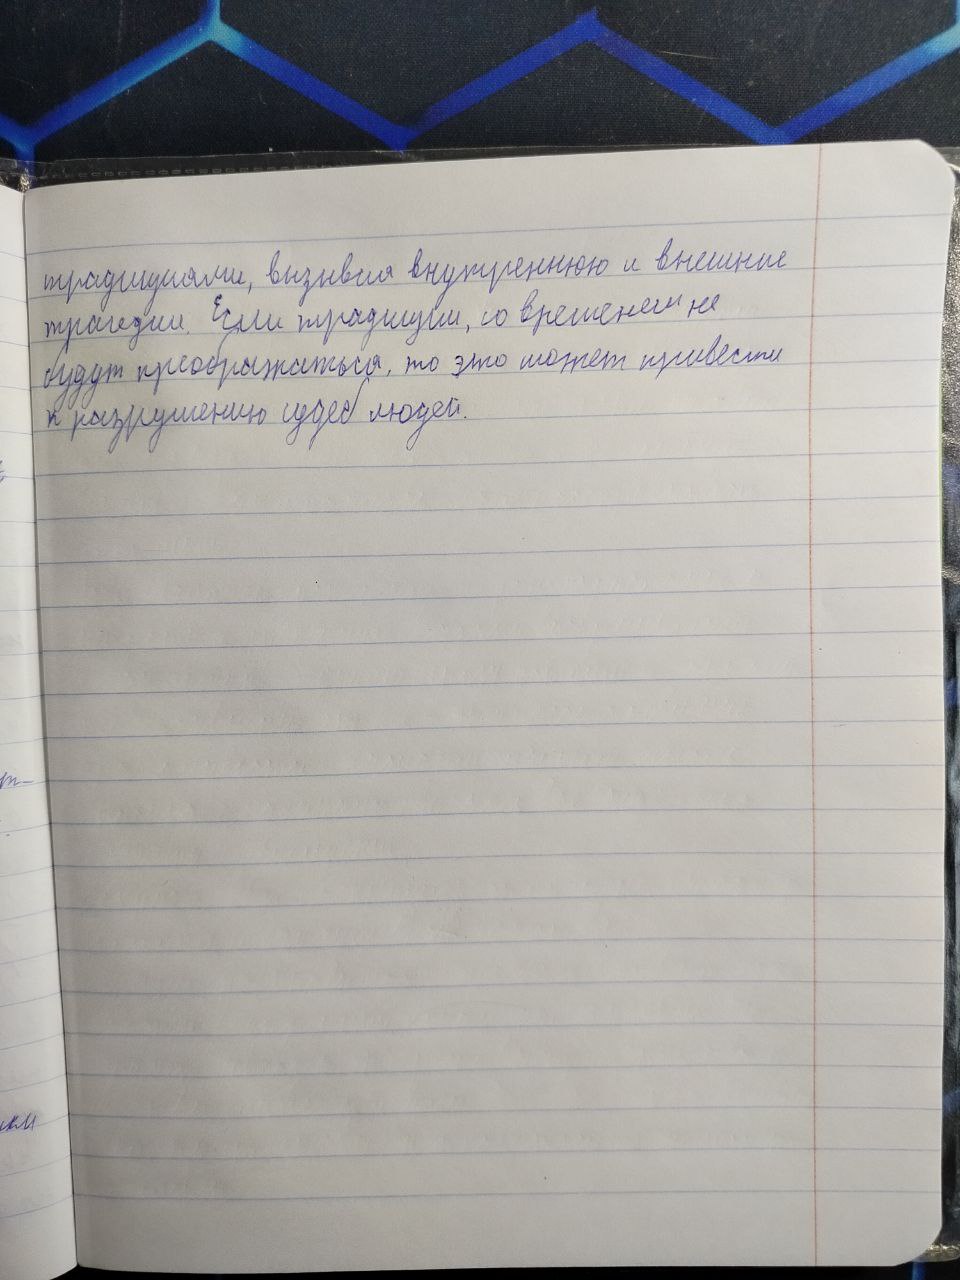 традициями, вызывая внутреннюю и внешние
трагедии. Если традиции, со временем не
будут преображаться, то это может привести
к разрушению судеб людей.